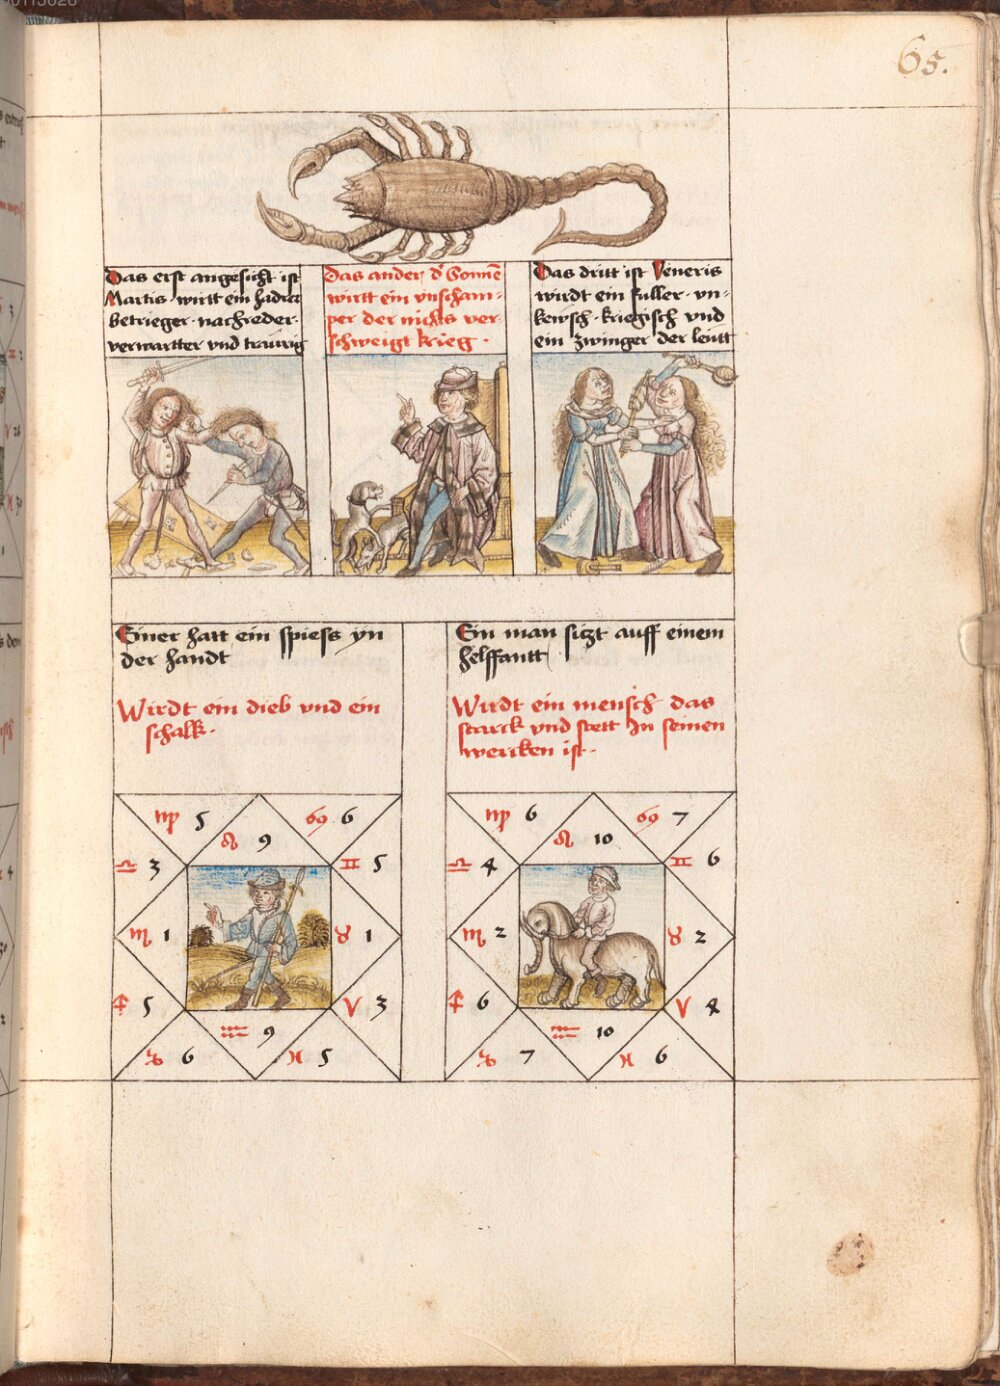 65.
Das erst angesicht ist
Martis wirtt ein hadrer
betrieger · nachreder ·
verwartter vnd traurig
Das ander d' Sonnē
wirtt ein vnscham=
per der nichts ver
schweigt krieg ·
Das dritt ist Veneris
wirdt ein fuller · vn=
kewsch · kriegisch vnd
ein zwinger der leutt
Einer hatt ein spiess yn
der handt
Wirdt ein dieb vnd ein
schalk ·
Ein man sitzt auff einem
helffantt
Wirdt ein mensch das
starck vnd stett In seinen
wercken ist ·
♍ 5 ♌ 9 ♋ 6
♎ 3 ♊ 5
♏ 1 ♉ 1
♐ 5 ♈ 3
♑ 6 ♒ 9 ♓ 5
♍ 6 ♌ 10 ♋ 7
♎ 4 ♊ 6
♏ 2 ♉ 2
♐ 6 ♈ 4
♑ 7 ♒ 10 ♓ 6